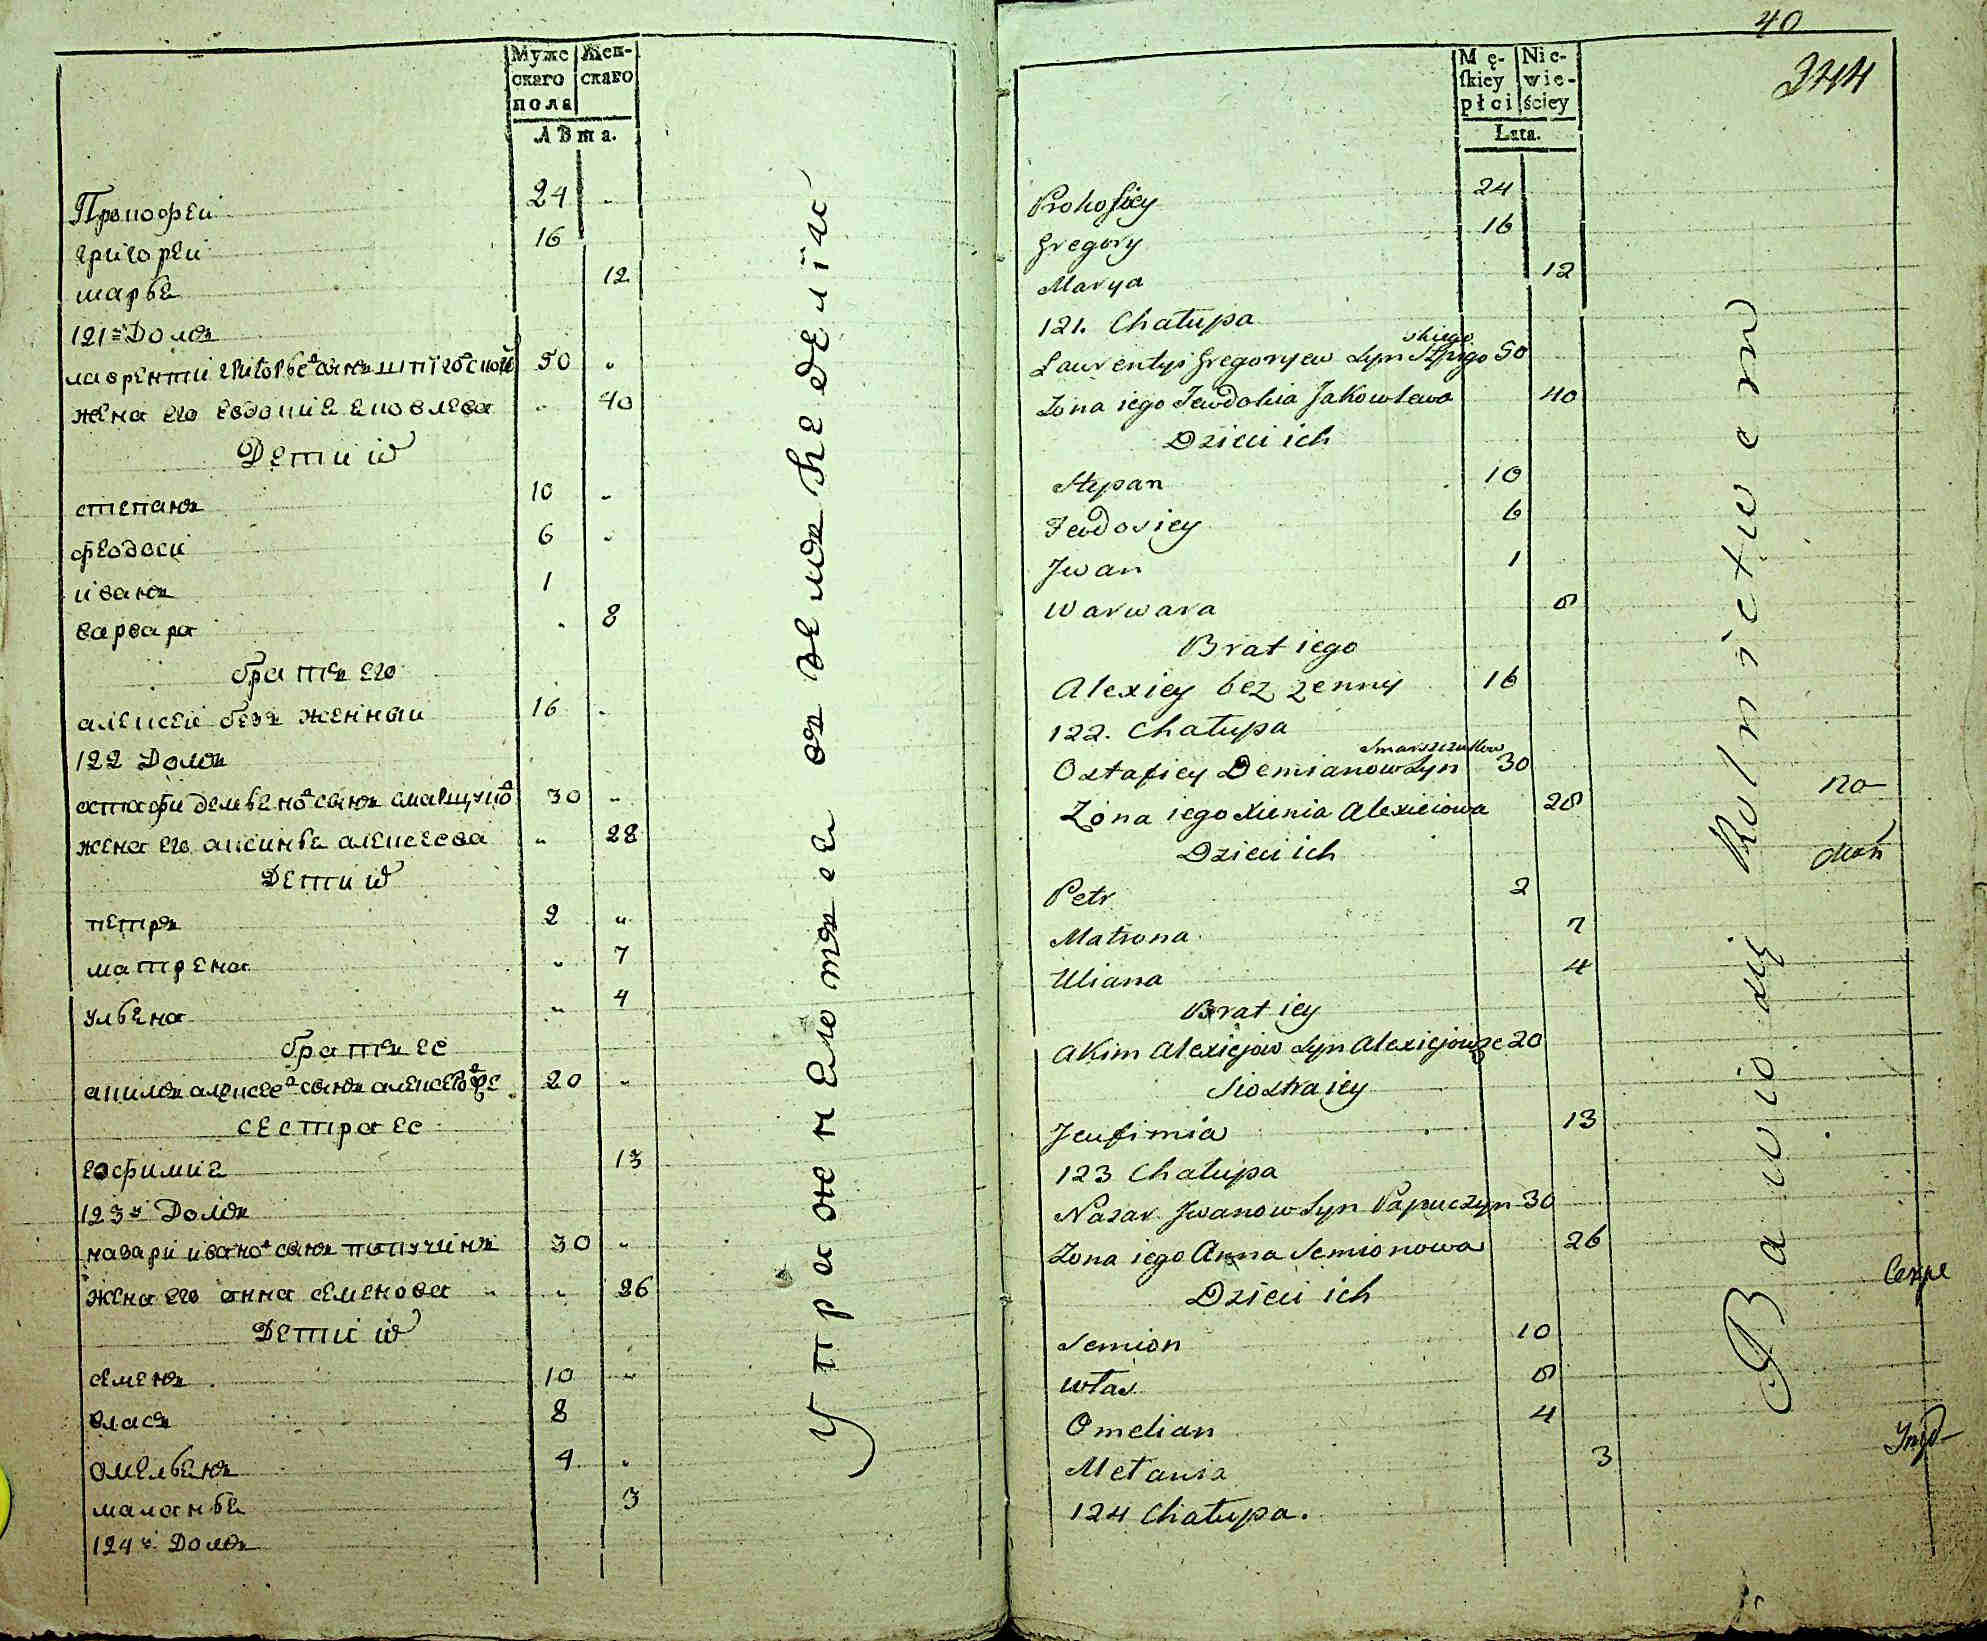 Мужскаго пола Женскаго
Лѣта.
Прокофеи 24
григореи 16
марья 12
121й Домъ
лаврентіи григорьевъ сынъ 50
жена его евдокия яковлева 40
Дети ихъ
степанъ 10
феодоси 6
иванъ 1
варвара 8
братъ его
алексеи безженныи 16
122 Домъ
астафи демьяновъ сынъ 30
жена его аксинья алексеева 28
Дети ихъ
петръ 2
матрена 7
ульяна 4
братъ ее
акимъ алексеевъ сынъ 20
сестра ее
евфимия 13
123й Домъ
назари ивановъ сынъ папучинъ 30
жена его анна семенова 26
Дети ихъ
семенъ 10
власъ 8
омельянъ 4
маланья 3
124й Домъ
Упражняются въ земледеліи
40
244
Męſkiey płci Niewieściey
Lata.
Prokofiey 24
Gregory 16
Marya 12
121. Chałupa
skiego
Laurentyi Gregoryew Syn 50
Zona iego Jewdokia Jakowlewa 40
Dzieci ich
Stypan 10
Fewdosiey 6
Jwan 1
Warwara 8
Brat iego
Alexiey bez zenny 16
122. Chałupa
Smarszczukow
Ostafiey Demianow Syn 30
Zona iego Xienia Alexieiowa 28
Dzieci ich
Petr 2
Matrona 7
Uliana 4
Brat iey
Akim Alexiejow Syn 20
Siostra iey
Jeufimia 13
123 Chałupa
Nazar Jwanow Syn Papuczyn 30
Zona iego Anna Semionowa 26
Dzieci ich
Semion 10
Włas 8
Omelian 4
Mełania 3
124 Chałupa.
Bawio się Rolnictwem
по
Секре